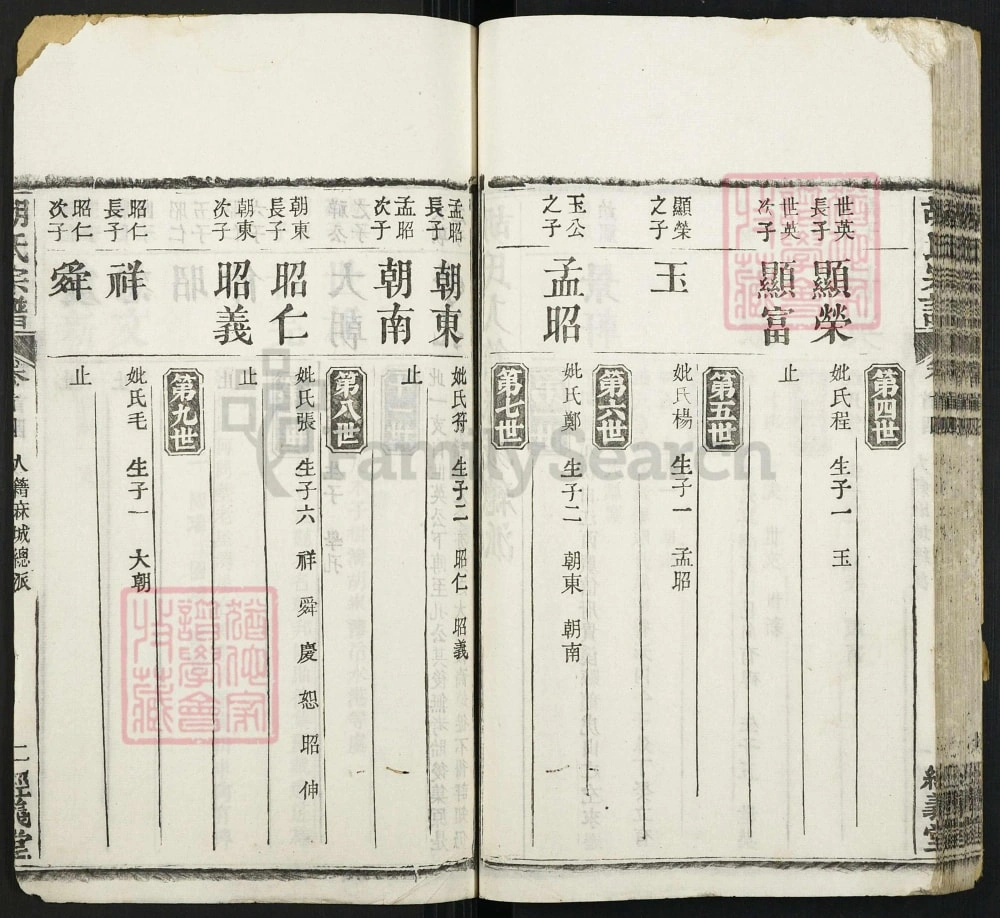 胡氏宗譜
經義堂
第四世
世英長子
顯榮
妣氏程 生子一 玉
世英次子
顯富
止
第五世
顯榮之子
玉
妣氏楊 生子一 孟昭
第六世
玉公之子
孟昭
妣氏鄭 生子二 朝東 朝南
第七世
孟昭長子
朝東
妣氏符 生子二 昭仁 昭義
孟昭次子
朝南
止
第八世
朝東長子
昭仁
妣氏張 生子六 祥 舜 慶 恕 昭 伸
朝東次子
昭義
止
第九世
昭仁長子
祥
妣氏毛 生子一 大朝
昭仁次子
舜
止
胡氏宗譜
入籍麻城總派
二
經義堂
FamilySearch